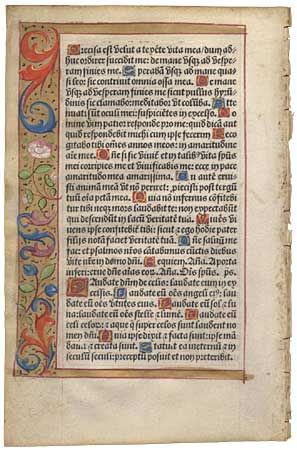 Precisa est velut a texēte vita mea/dum ad
huc ordirer succidit me: de mane vsq3 ad vespe
ram finies me. Sperabā vsq3 ad mane quasi
leo: sic contriuit omnia ossa mea. De mane
vsq3 ad vesperam finies me sicut pullus hyrun
dinis sic clamabo: meditabo: vt colūba. Atte
nuati sūt oculi mei: suspiciētes in excelso. Do
mine vim patior respōde pro me: quid dicā aut
quid respondebit michi cum ipse fecerim Reco
gitabo tibi oēs annos meos: in amaritudine
aīe mee. Dñe si sic viuit̄ et in talib9 vita spūs
mei corripies me et viuificabis me: ecce in pace
amaritudo mea amarissima. Tu autē erui
sti animā meā vt nō periret: piecisti post tergū
tuū oīa pctā mea. Quia nō infernus cōfitebi
tur tibi neq3 mors laudabit te: non expectabūt
qui descendūt in lacū veritatē tuā. Viuēs vi
uens ipse confitebit̄ tibi: sicut z ego hodie pater
filijs notā faciet veritatē tuā. Dñe saluū me
fac: et psalmos nr̄os cātabimus cūctis diebus
vite nr̄e in domo dñi. Requiem. Añā. A porta
inferi: erue dñe aīas eoꝝ. Añā. Ois spūs. ps.
Laudate dñm de celis: laudate eum in ex
celsis. Laudate eū oēs angeli ei9: lau
date eū oēs virtutes eius. Laudate eū sol z lu
na: laudate eum oēs stelle z lumē. Laudate eū
celi celoꝝ: z aque q̄ super celos sunt laudent no
men dñi. Quia ipse dixit z facta sunt: ipse mā
dauit z creata sunt. Statuit ea in eternū z in
seculū seculi: preceptū posuit et non preteribit.